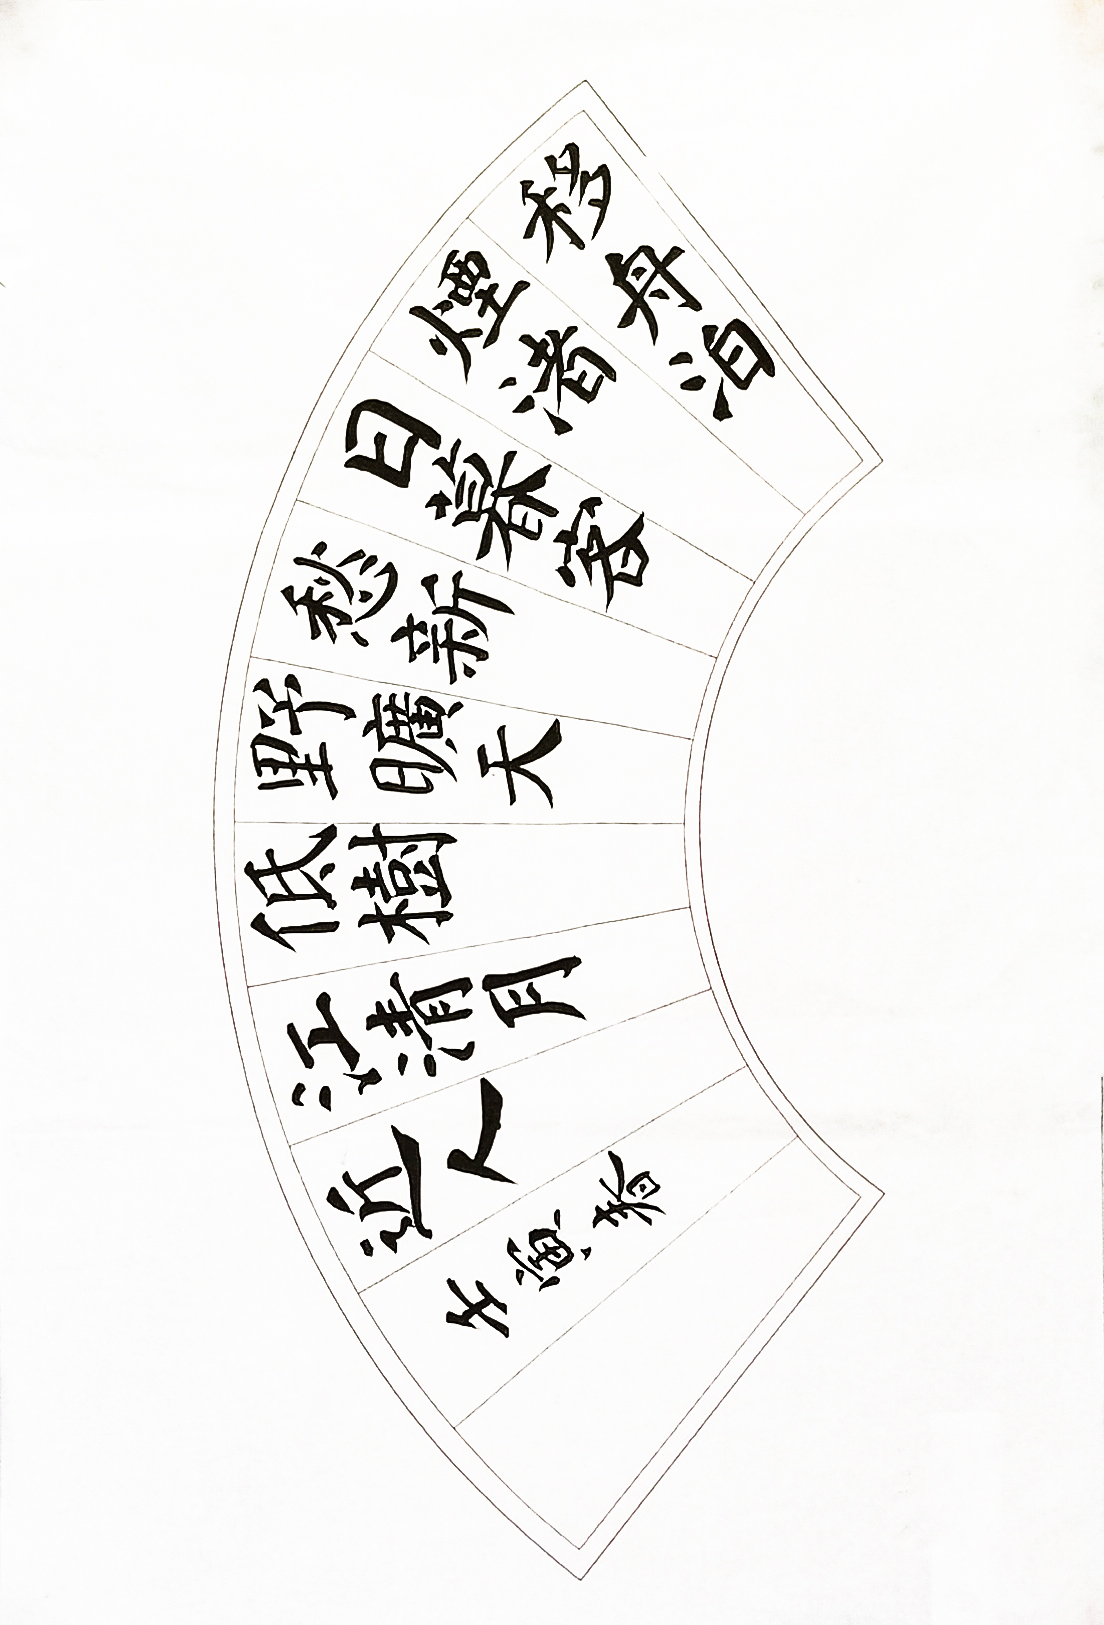 移舟泊
煙渚
日暮客
愁新
野曠天
低樹
江清月
近人
壬寅春